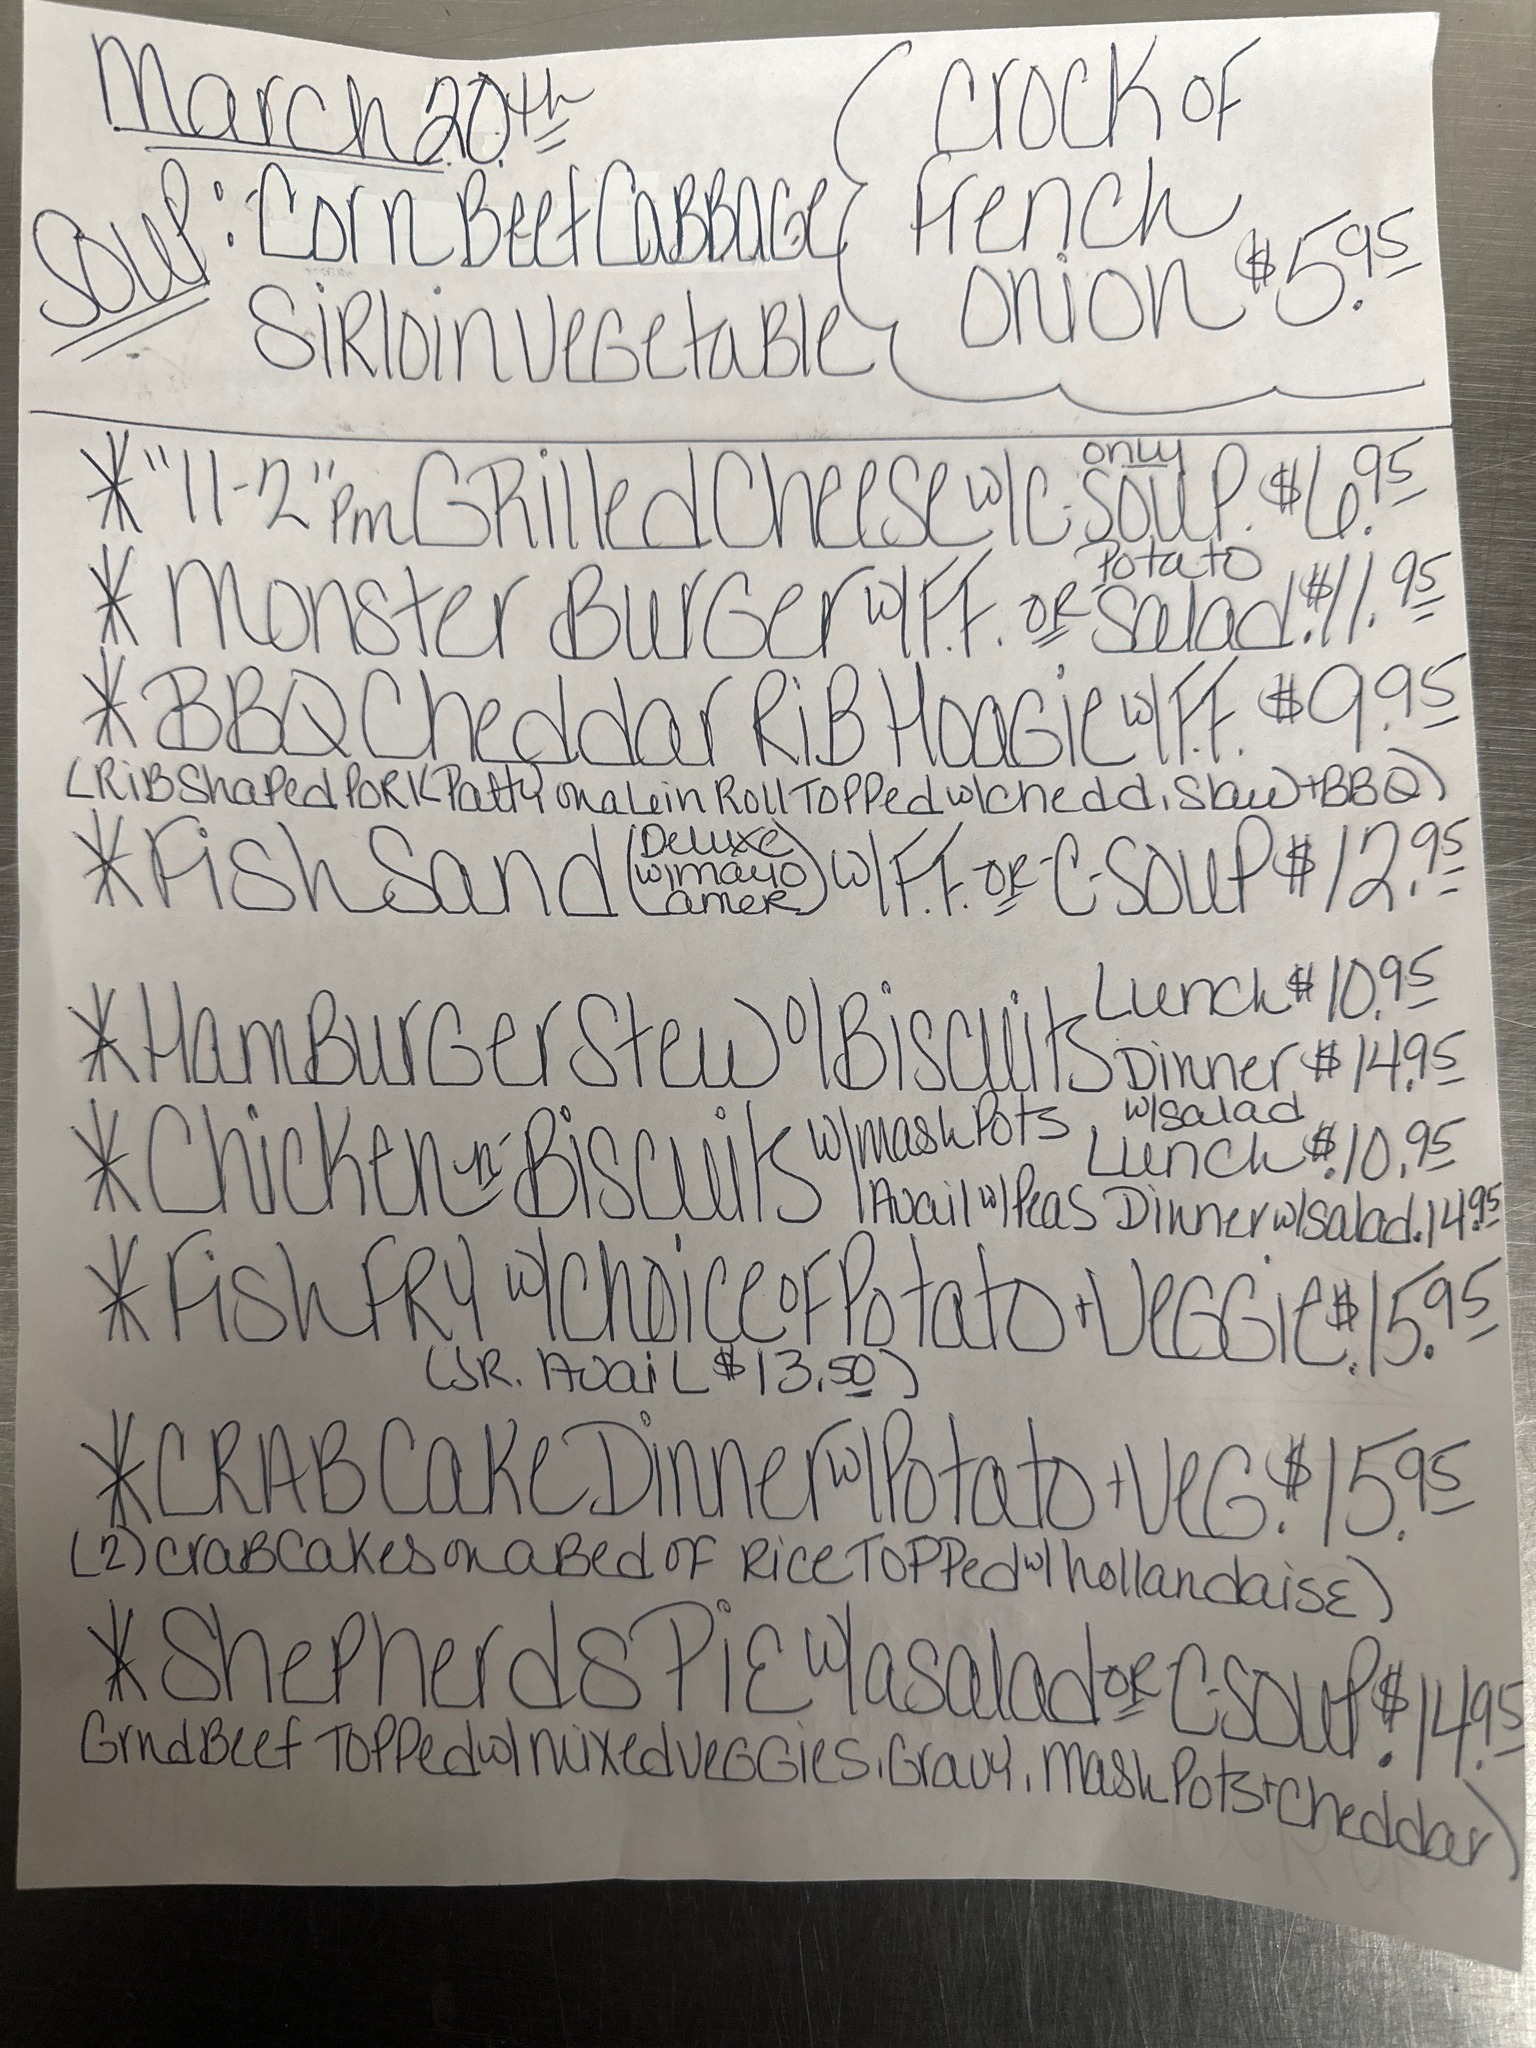 March 20th
Soup: Corn Beef Cabbage
Sirloin Vegetable
Crock of
French
Onion $5.95
* "11-2" pm Grilled Cheese w/ C-Soup. only $6.95
* Monster Burger w/ F.F. or Potato Salad. $11.95
* BBQ Cheddar Rib Hoagie w/ F.F. $9.95
(Rib Shaped Pork Patty on a Lg in Roll Topped w/ chedd, Slaw + BBQ)
* Fish Sand (Deluxe w/ mayo amer) w/ F.F. or C-Soup $12.95
* Hamburger Stew o/ Biscuits Lunch $10.95
Dinner $14.95
w/ salad
* Chicken -n- Biscuits w/ mash Pots Lunch $.10.95
Avail w/ Peas Dinner w/ salad. 14.95
* Fish Fry w/ choice of Potato + Veggie. $15.95
(Jr. Avail $13.50)
* Crab Cake Dinner w/ Potato + Veg. $15.95
(2) crab cakes on a Bed of Rice Topped w/ hollandaise)
* Shepherds Pie w/ a salad or C-Soup. $14.95
Grnd Beef Topped w/ mixed veggies, Gravy, mash Pots + Cheddar)